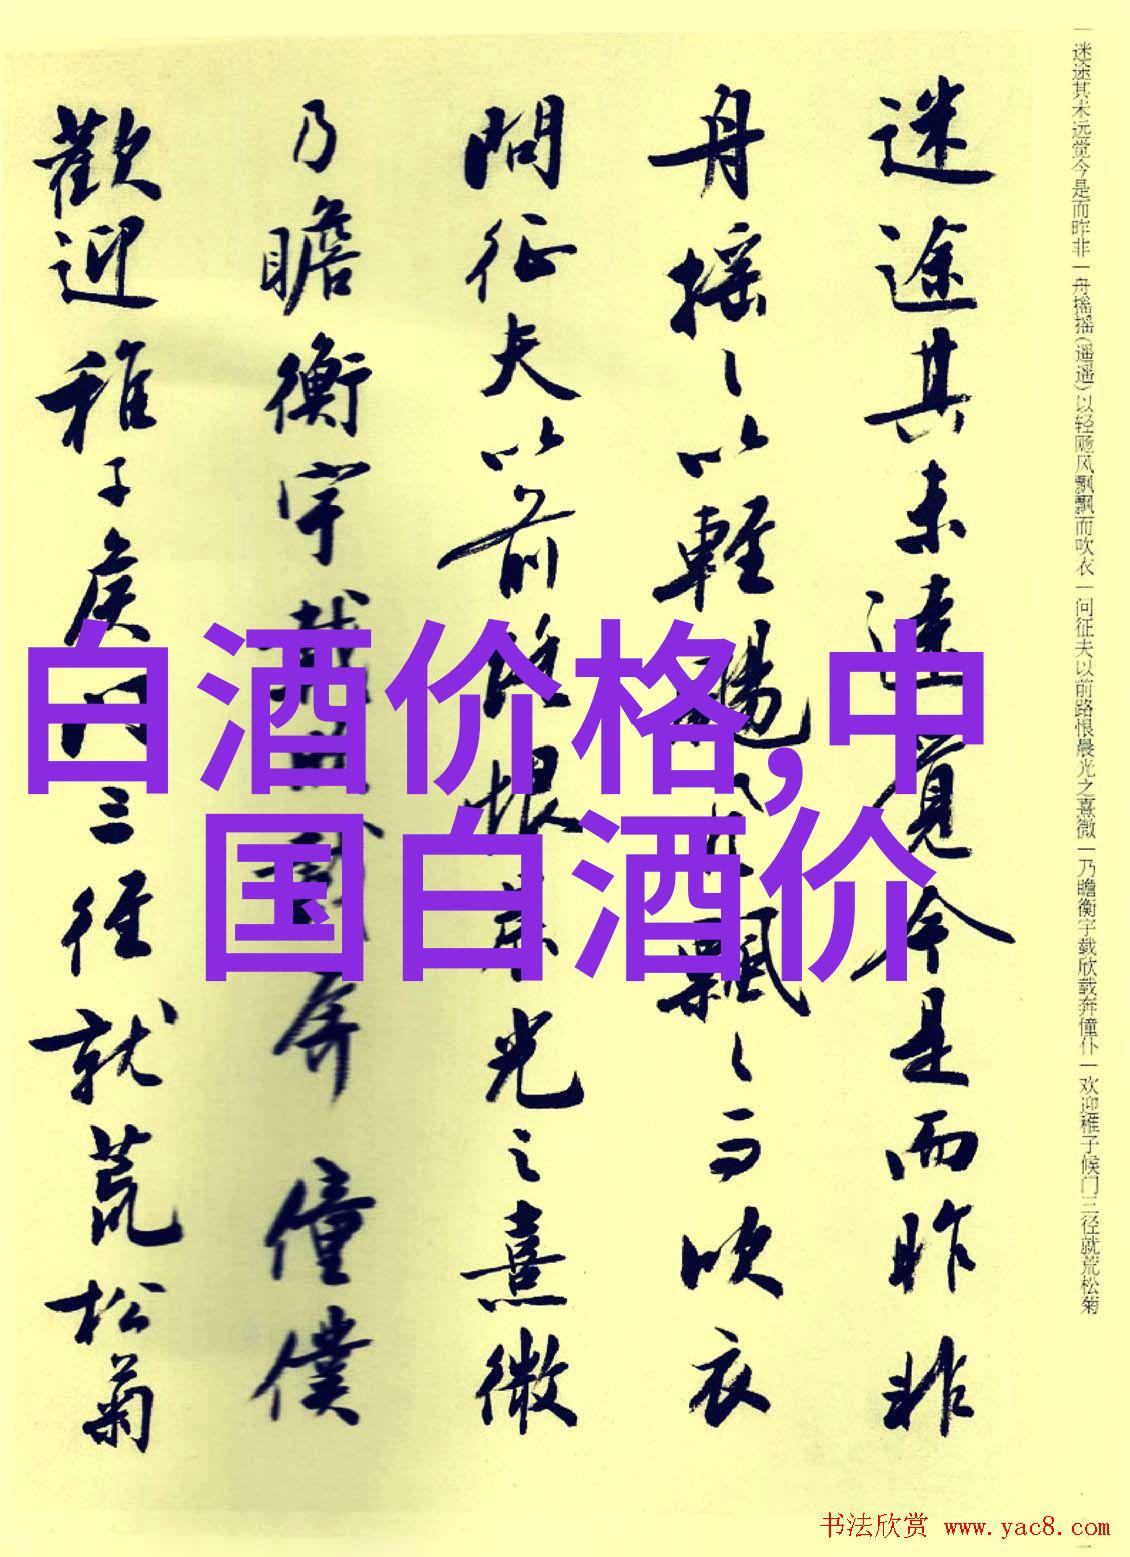 一迷途其未远觉今是而昨非一舟摇摇(遥遥)以轻飏风飘飘而吹衣一问征夫以前路恨晨光之熹微一乃瞻衡宇载欣载奔僮仆一欢迎稚子候门三径就荒松菊
迷途其未遠覺今是而昨非
舟摇〻以輕颺風飄〻而吹衣
問征夫以前路恨晨光之熹微
乃瞻衡宇載欣載奔僮僕
歡迎稚子候門三徑就荒松菊
白酒价格,中
国白酒价
书法欣赏 www.yac8.com